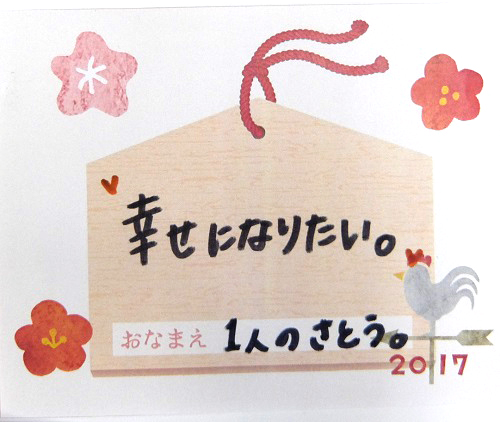 幸せになりたい。
おなまえ 1人のさとう。
2017